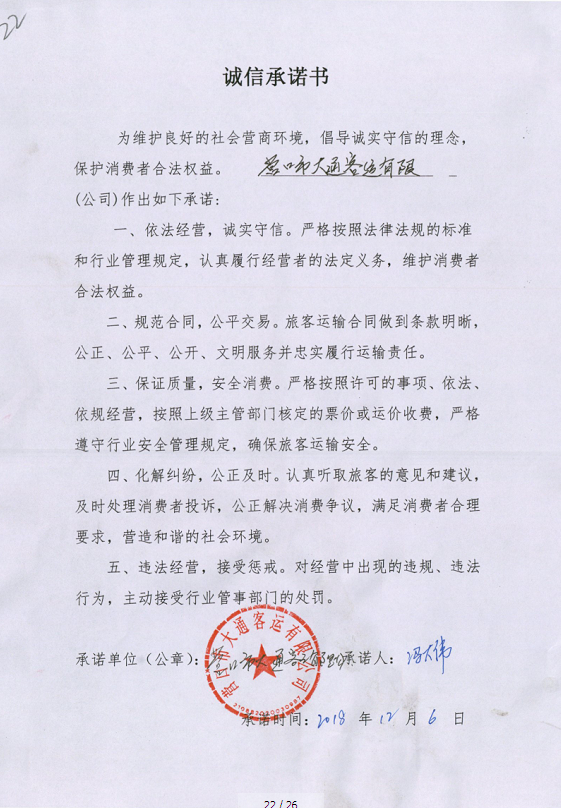 22
诚信承诺书
为维护良好的社会营商环境，倡导诚实守信的理念，
保护消费者合法权益。 营口市大通客运有限
(公司)作出如下承诺:
一、依法经营，诚实守信。严格按照法律法规的标准
和行业管理规定，认真履行经营者的法定义务，维护消费者
合法权益。
二、规范合同，公平交易。旅客运输合同做到条款明晰，
公正、公平、公开、文明服务并忠实履行运输责任。
三、保证质量，安全消费。严格按照许可的事项、依法、
依规经营，按照上级主管部门核定的票价或运价收费，严格
遵守行业安全管理规定，确保旅客运输安全。
四、化解纠纷，公正及时。认真听取旅客的意见和建议，
及时处理消费者投诉，公正解决消费争议，满足消费者合理
要求，营造和谐的社会环境。
五、违法经营，接受惩戒。对经营中出现的违规、违法
行为，主动接受行业管事部门的处罚。
营口市大通客运有限公司
承诺单位（公章）：营口市大通客运 承诺人：冯大伟
承诺时间：2018 年 12 月 6 日
22 / 26